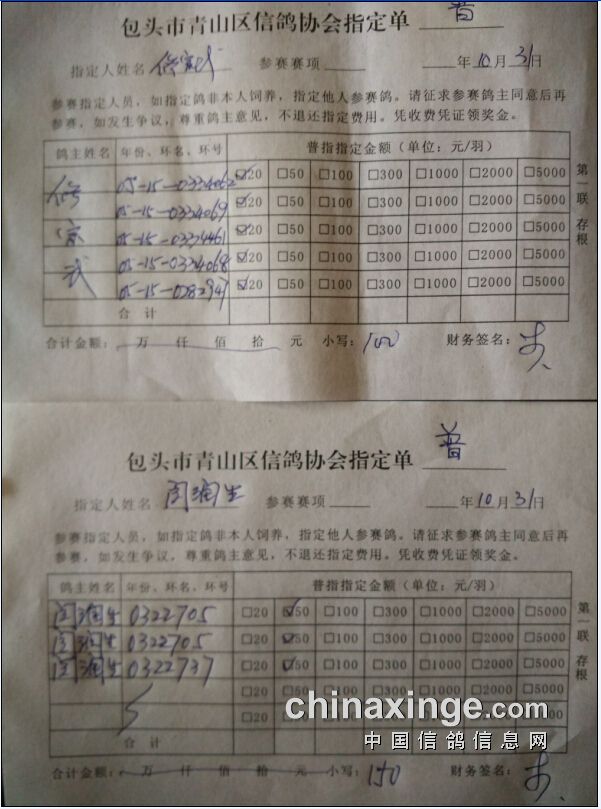 包头市青山区信鸽协会指定单 普
指定人姓名 修富武 参赛赛项 年10月31日
参赛指定人员，如指定鸽非本人饲养，指定他人参赛鸽。请征求参赛鸽主同意后再
参赛，如发生争议，尊重鸽主意见，不退还指定费用。凭收费凭证领奖金。
鸽主姓名 年份、环名、环号 普指指定金额（单位：元/羽）
修 05-15-0334062 ☑20 □50 □100 □300 □1000 □2000 □5000
05-15-0334069 ☑20 □50 □100 □300 □1000 □2000 □5000
富 05-15-0334461 ☑20 □50 □100 □300 □1000 □2000 □5000
05-15-0334068 ☑20 □50 □100 □300 □1000 □2000 □5000
武 05-15-0282947 ☑20 □50 □100 □300 □1000 □2000 □5000
合 计
第一联 存根
合计金额： 万 仟 佰 拾 元 小写：100 财务签名：
包头市青山区信鸽协会指定单 普
指定人姓名 闫润生 参赛赛项 年10月31日
参赛指定人员，如指定鸽非本人饲养，指定他人参赛鸽。请征求参赛鸽主同意后再
参赛，如发生争议，尊重鸽主意见，不退还指定费用。凭收费凭证领奖金。
鸽主姓名 年份、环名、环号 普指指定金额（单位：元/羽）
闫润生 0322705 □20 ☑50 □100 □300 □1000 □2000 □5000
闫润生 0322705 □20 ☑50 □100 □300 □1000 □2000 □5000
闫润生 0322737 □20 ☑50 □100 □300 □1000 □2000 □5000
□20 □50 □100 □300 □1000 □2000 □5000
□20 □50 □100 □300 □1000 □2000 □5000
合 计
第一联 存根
合计金额： 万 仟 佰 拾 元 小写：150 财务签名：
chinaxinge.com
中国信鸽信息网